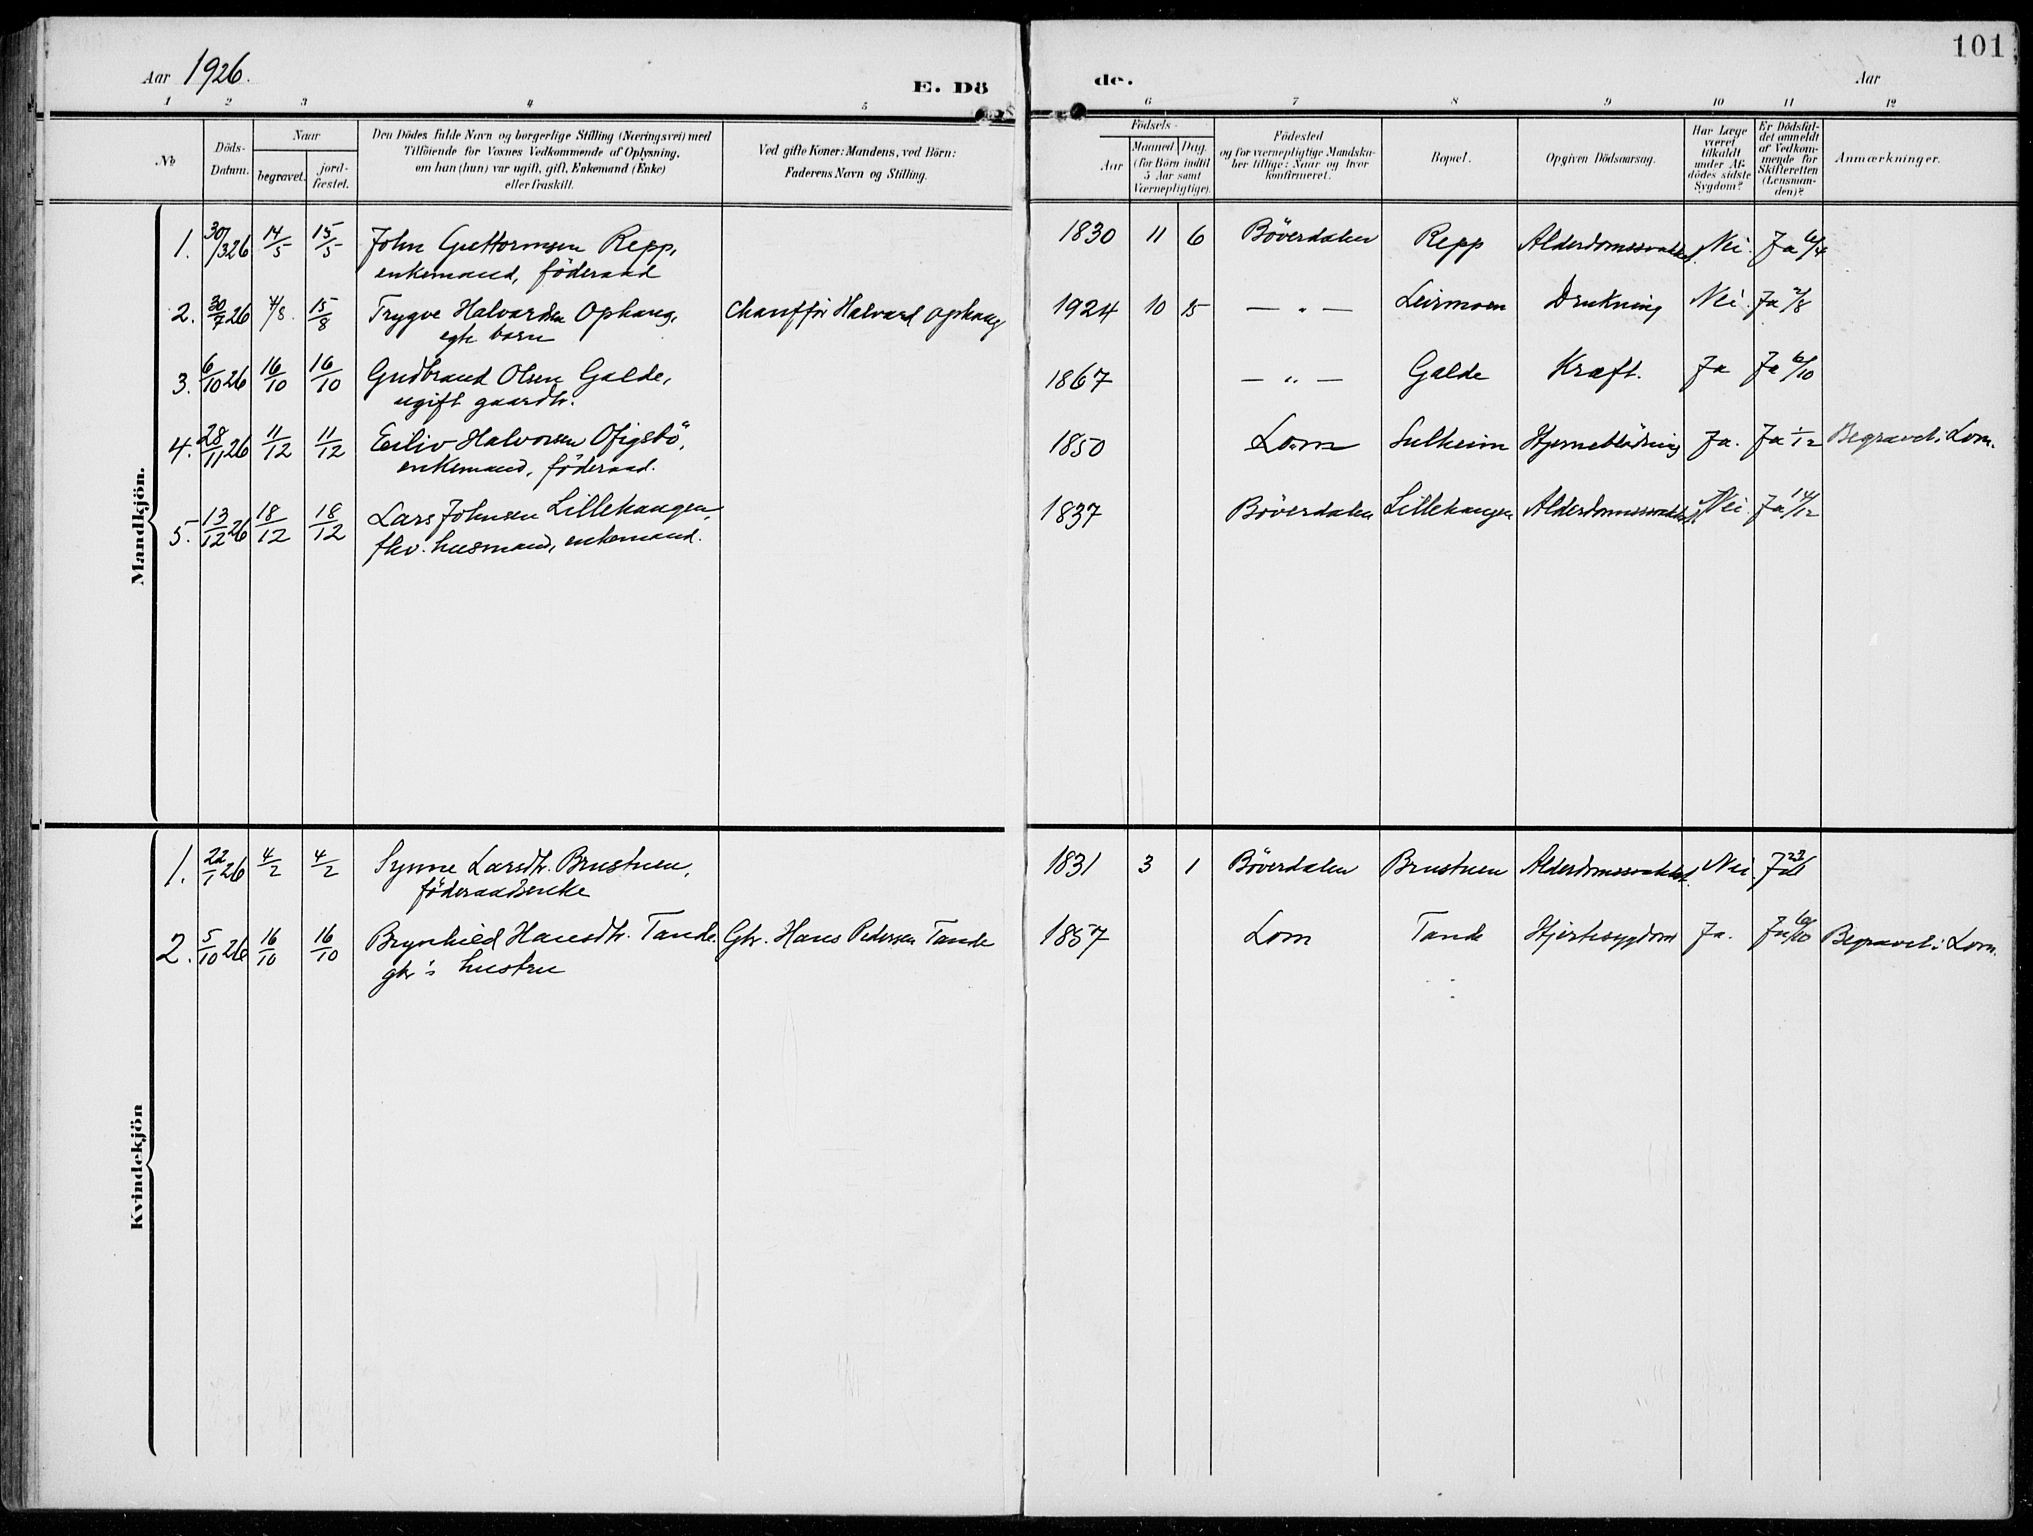 101
Aar 1926.
E. Dö
de.
Aar
1 2 3 4 5 6 7 8 9 10 11 12
No
Döds-Datum.
Naar
begravet.
jord-fæstet.
Den Dödes fulde Navn og borgerlige Stilling (Næringsvei) med
Tilföiende for Voxnes Vedkommende af Oplysning,
om han (hun) var ugift, gift, Enkemand (Enke)
eller fraskilt.
Ved gifte Koner: Mandens, ved Börn:
Faderens Navn og Stilling.
Födsels-
Aar
Maaned Dag.
(for Börn indtil
5 Aar samt
Værnepligtige).
Födested
og for værnepligtige Mandska-
ber tillige: Naar og hvor
konfirmeret.
Bopæl.
Opgiven Dödsaarsag.
Har Læge
været
tilkaldt
under Af-
dödes sidste
Sygdom?
Er Dödsfal-
det anmeldt
af Vedkom-
mende for
Skifteretten
(Lensman-
den)?
Anmærkninger.
Mandkjön.
1. 30/3 26 14/5 15/5 John Guttormsen Repp, 1830 11 6 Böverdalen Repp Alderdomssvakhet. Nei. Ja 6/4
enkemand, föderaad
2. 30/7 26 4/8. 15/8 Trygve Halvardsen Ophaug, Chaufför Halvard Ophaug 1924 10 15 — " — Leirmoen Drukning Nei. Ja 2/8
egte barn
3. 6/10 26 16/10 16/10 Gudbrand Olsen Galde, 1867 — " — Galde Kræft. Ja Ja 6/10
ugift gaardbr.
4. 28/11 26 11/12 11/12 Eiliv Halvorsen Ofigsbö, 1850 Lom Sulheim Hjerneblödning Ja. Ja 1/12 Begravet i Lom.
enkemand, föderaad.
5. 13/12 26 18/12 18/12 Lars Johnsen Lillehaugen, 1837 Böverdalen Lillehaugen Alderdommssvakhet Nei. Ja 14/12
fhv. husmand, enkemand.
Kvindekjön
1. 22/1 26 4/2 4/2 Synne Larsdtr. Brustuen, 1831 3 1 Böverdalen Brustuen Alderdomssvakhet. Nei. Ja 23/1
föderaadsenke
2. 5/10 26 16/10 16/10 Brynhild Hansdtr. Tande. Gbr. Hans Pedersen Tande 1857 Lom Tande Hjertesygdom Ja. Ja 6/10 Begravet i Lom.
gbr's hustru